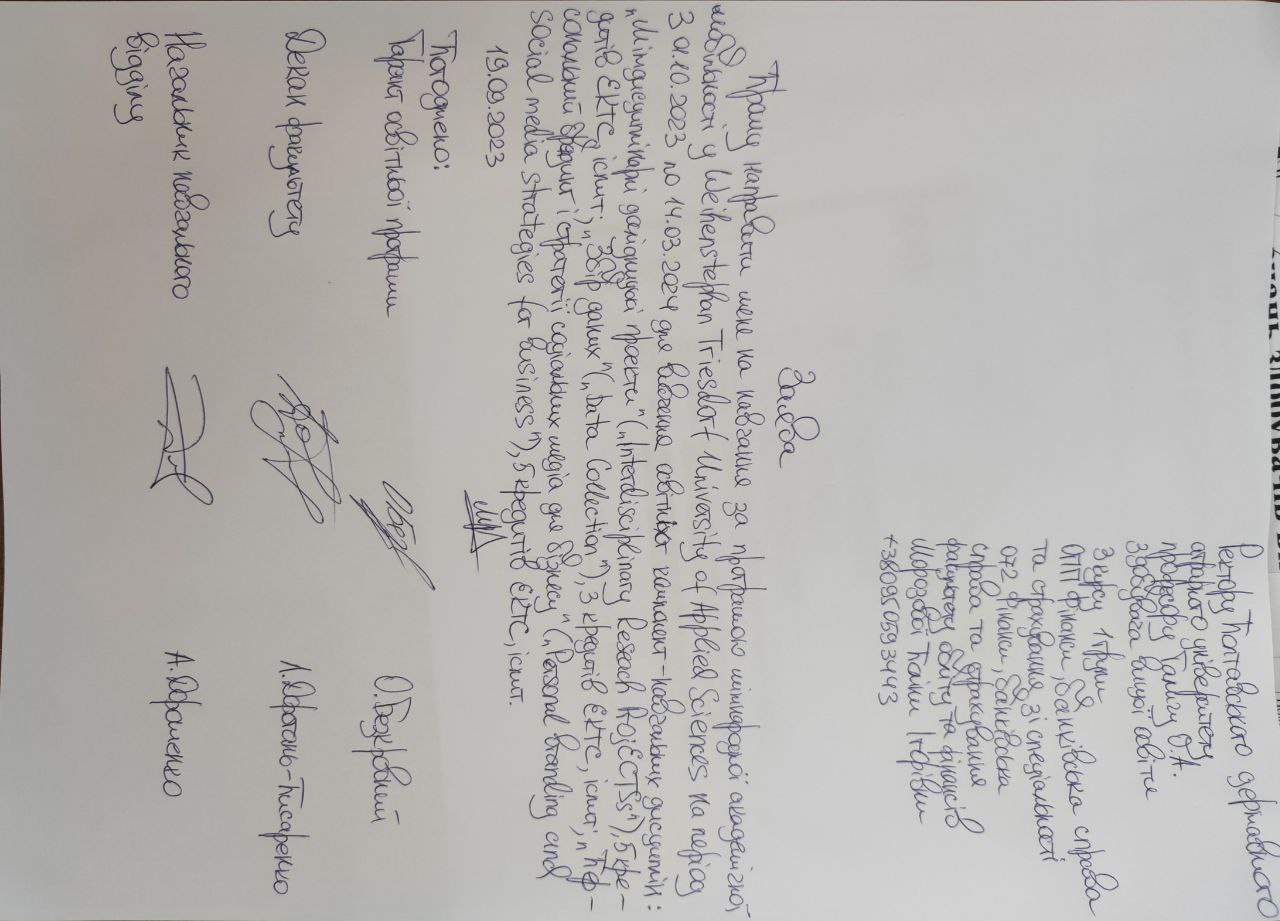 Ректору Полтавського державного
аграрного університету
професору Галичу О.А.
здобувача вищої освіти
3 курсу 1 групи
ОПП Фінанси, банківська справа
та страхування зі спеціальності
072 Фінанси, банківська
справа та страхування
факультету обліку та фінансів
Морозової Поліни Ігорівни
+380950593443
Заява
Прошу направити мене на навчання за програмою міжнародної академічної
мобільності у Weihenstephan Triesdorf University of Applied Sciences на період
з 01.10.2023 по 14.03.2024 для вивчення освітніх компонент-навчальних дисциплін:
„Міждисциплінарні дослідницькі проекти" („Interdisciplinary Research PROJECTSs"), 5 кре-
дитів ЄКТС, іспит; „Збір даних" („Data Collection"), 3 кредитів ЄКТС, іспит; „Пер-
сональний брендинг і стратегії соціальних медіа для бізнесу" („Personal branding and
social media strategies for business"), 5 кредитів ЄКТС, іспит.
19.09.2023
Погоджено:
Гарант освітньої програми О. Безкровний
Декан факультету Л. Дорогань-Писаренко
Начальник навчального А. Дорошенко
відділу